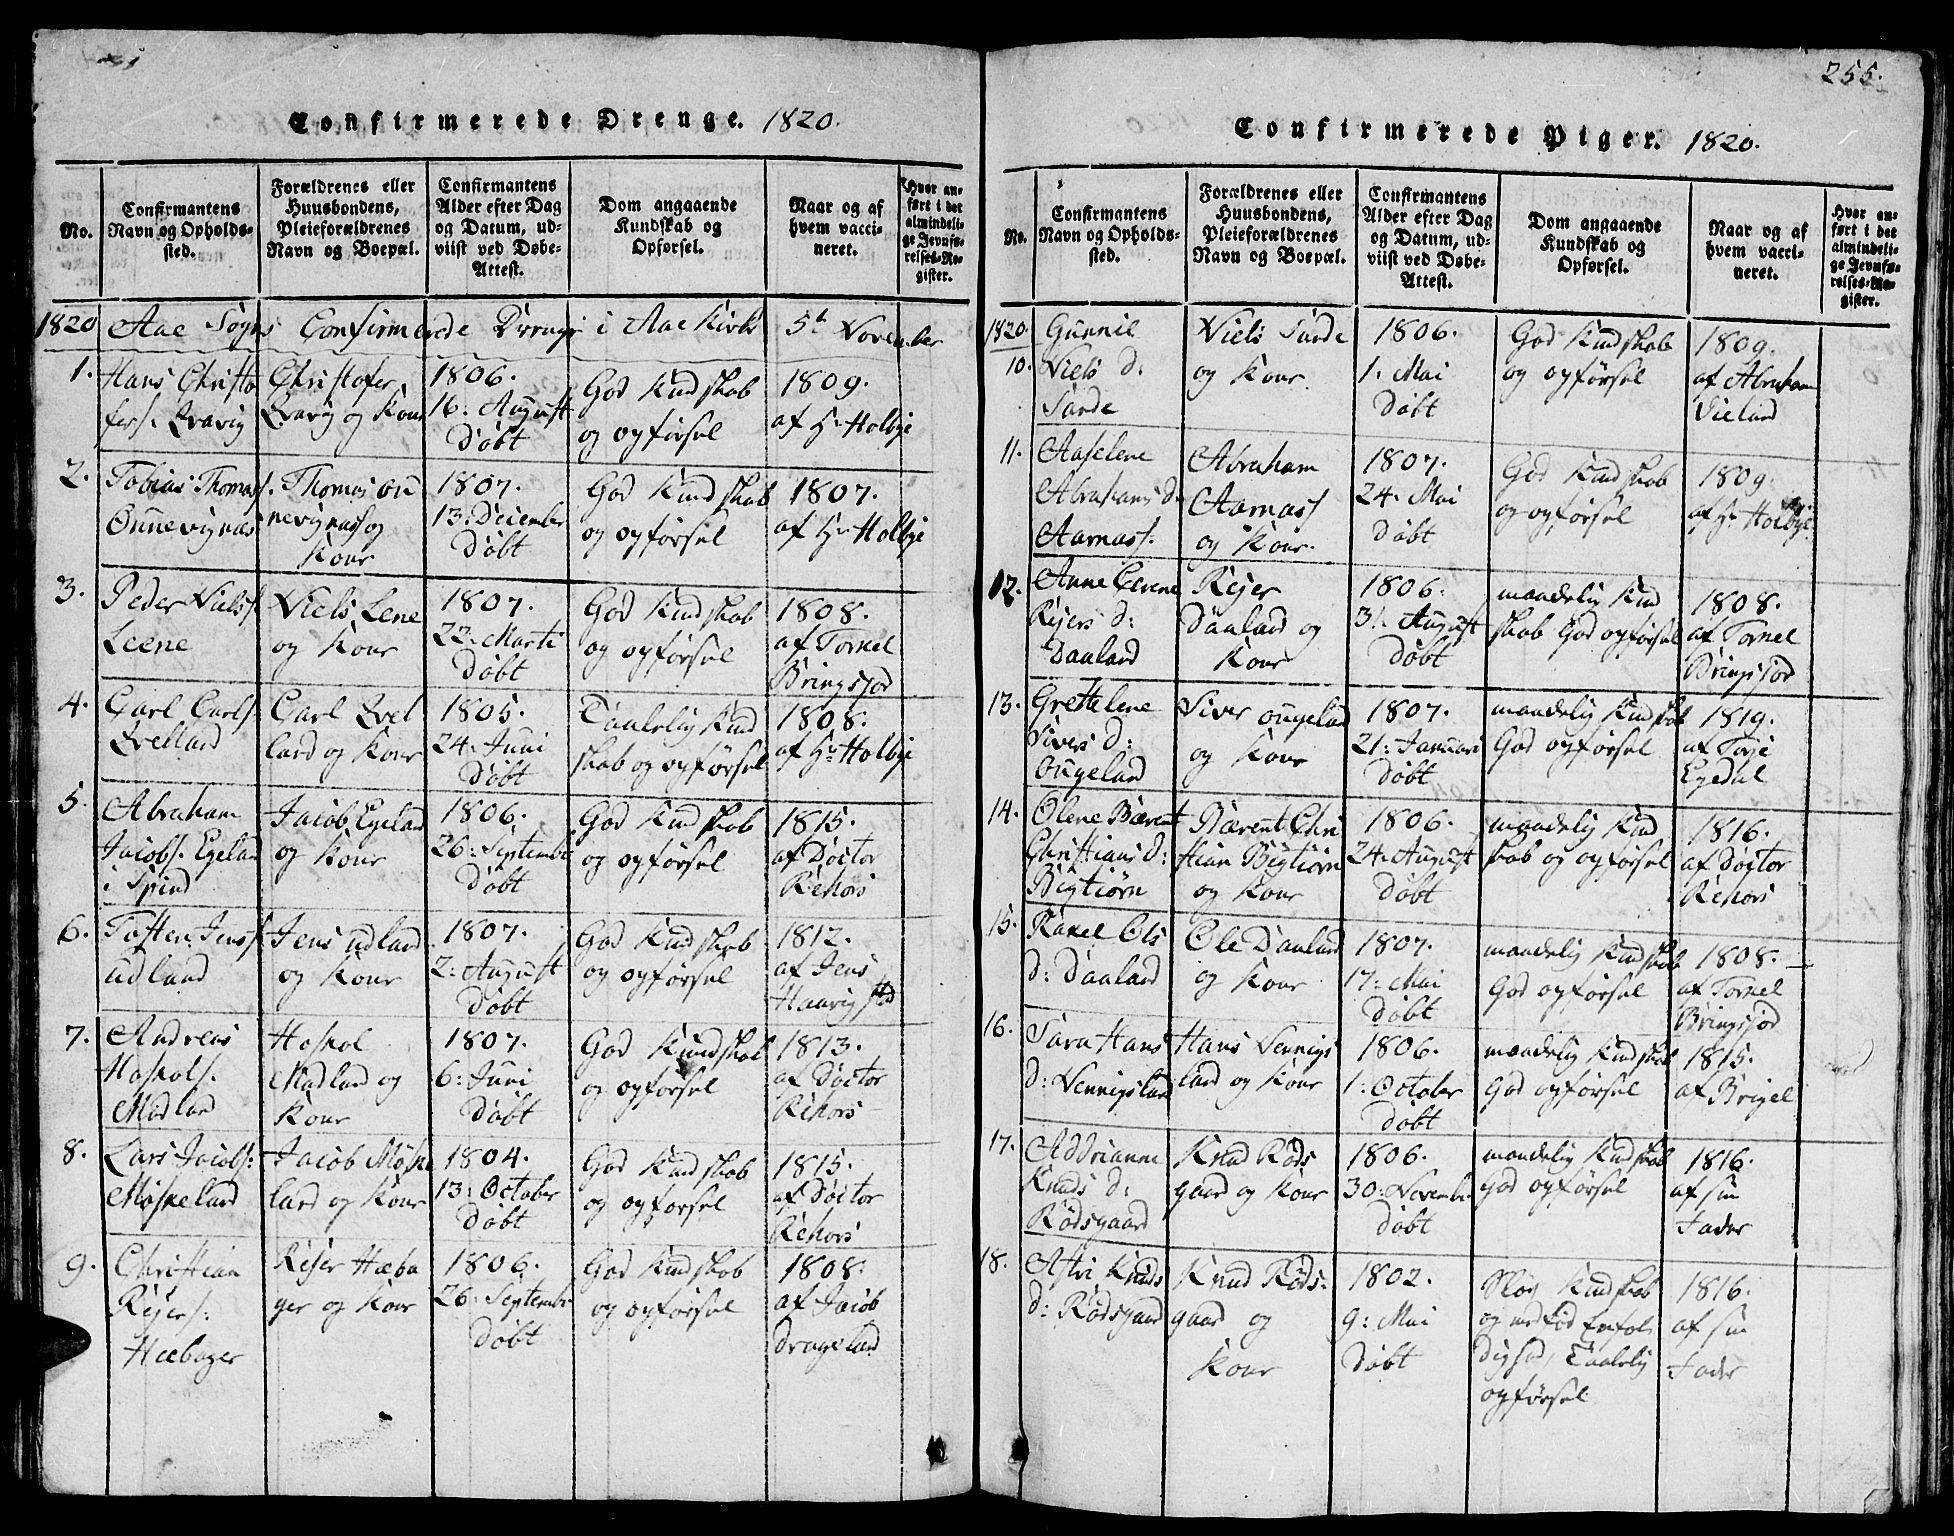 Confirmerede Drenge. 1820.
No.
Confirmantens
Navn og Opholds-
sted.
Forældrenes eller
Huusbondens,
Pleieforældrenes
Navn og Boepæl.
Confirmantens
Alder efter Dag
og Datum, ud-
viist ved Døbe-
Attest.
Dom angaaende
Kundskab og
Opførsel.
Naar og af
hvem vacci-
neret.
Hvor an-
ført i det
almindeli-
ge Jevnfø-
relses-Re-
gister.
1820 Aae Sogns Confirmerede Drenge i Aae Kirke 5t November
1.
Hans Christo
fers.
Christofer
og Kone
1806.
16. August
Døbt
God Kundskab
og opførsel
1809.
af Hr Holbye
2.
Tobias Thomass.
Ønnevignæs
Thomas Øn
nevignæs og
Kone
1807.
13. December
Døbt
God Kundskab
og opførsel
1807.
af Hr Holbye
3.
Peder Niels s.
Leene
Niels Lene
og Kone
1807.
22. Marti
Døbt
God Kundskab
og opførsel
1808.
af Tornel
Bringsjor
4.
Carl Carls.
Qvelland
Carl Qvel
land og Kone
1805.
24. Juni
Døbt
Taalelig Kund
skab og opførsel
1808.
af Hr Holbye
5.
Abraham
Jacobs. Egeland
i Spind
Jacob Egeland
og Kone
1806.
26. Septembr
Døbt
God Kundskab
og opførsel
1815.
af Doctor
Rehors
6.
Tosten Jenss.
udland
Jens udland
og Kone
1807.
2. August
Døbt
God Kundskab
og opførsel
1812.
af Jens
Haavigstad
7.
Andreas
Haskols.
Madland
Haskol
Madland og
Kone
1807.
6. Juni
Døbt
God Kundskab
og opførsel
1813.
af Doctor
Rehors
8.
Lars Jacobs.
Møskeland
Jacob Møske
land og Kone
1804.
13. October
Døbt
God Kundskab
og opførsel
1815.
af Doctor
Rehors
9.
Christian
Reiers.
Hæbager
Reier Hæba
ger og Kone
1806.
26. Septembr
Døbt
God Kundskab
og opførsel
1808.
af Jacob
Drageland
255.
Confirmerede Piger. 1820.
No.
Confirmantens
Navn og Opholds-
sted.
Forældrenes eller
Huusbondens,
Pleieforældrenes
Navn og Boepæl.
Confirmantens
Alder efter Dag
og Datum, ud-
viist ved Døbe-
Attest.
Dom angaaende
Kundskab og
Opførsel.
Naar og af
hvem vacci-
neret.
Hvor an-
ført i det
almindeli-
ge Jevnfø-
relses-Re-
gister.
1820.
10.
Gunnil
Niels d.
Sande
Niels Sande
og Kone
1806.
1. Mai
Døbt
God Kundskab
og opførsel
1809.
af Abraham
Vieland
11.
Aaselene
Abrahams d.
Aarnass.
Abraham
Aarnass
og Kone.
1807.
24. Mai
Døbt
God Kundskab
og opførsel
1809.
af Hr Holbye
12.
Anne Cerene
Reiers d:
Daaland
Reier
Daaland og
Kone
1806.
31. August
Døbt
maadelig Kund
skab God opførsel
1808.
af Tornel
Bringsjor
13.
Grethelene
Sivers d:
Ougeland
Siver ougeland
og Kone
1807.
21. Januari
Døbt
maadelig Kundskab
God opførsel
1819.
af Terje
Egedal
14.
Olene Bærent
Christians d:
Bigtiørn
Bærent Chri
stian Bigtiørn
og Kone
1806.
24. August
Døbt
maadelig Kund
skab og opførsel
1816.
af Doctor
Rehors
15.
Rakel Ols
d: Daaland
Ole Daaland
og Kone
1807.
17. Mai
Døbt
maadelig Kundskab
God opførsel
1808.
af Tornel
Bringsjor
16.
Sara Hans
d: Vennigsland
Hans Vennigs
land og Kone
1806.
1. October
Døbt
maadelig Kundskab
God opførsel
1815.
af Brigel
17.
Addrianne
Knuds d:
Rødsgaard
Knud Røds
gaard og Kone
1806.
30. Novembr
Døbt
maadelig Kundskab
god opførsel
1816.
af sin
Fader
18.
Astri Knuds
d: Rødsgaard
Knud Røds-
gaard og
Kone
1802.
9: Mai
Døbt
Kundskab
og
Taalelig
opførsel
1816.
af sin
Fader